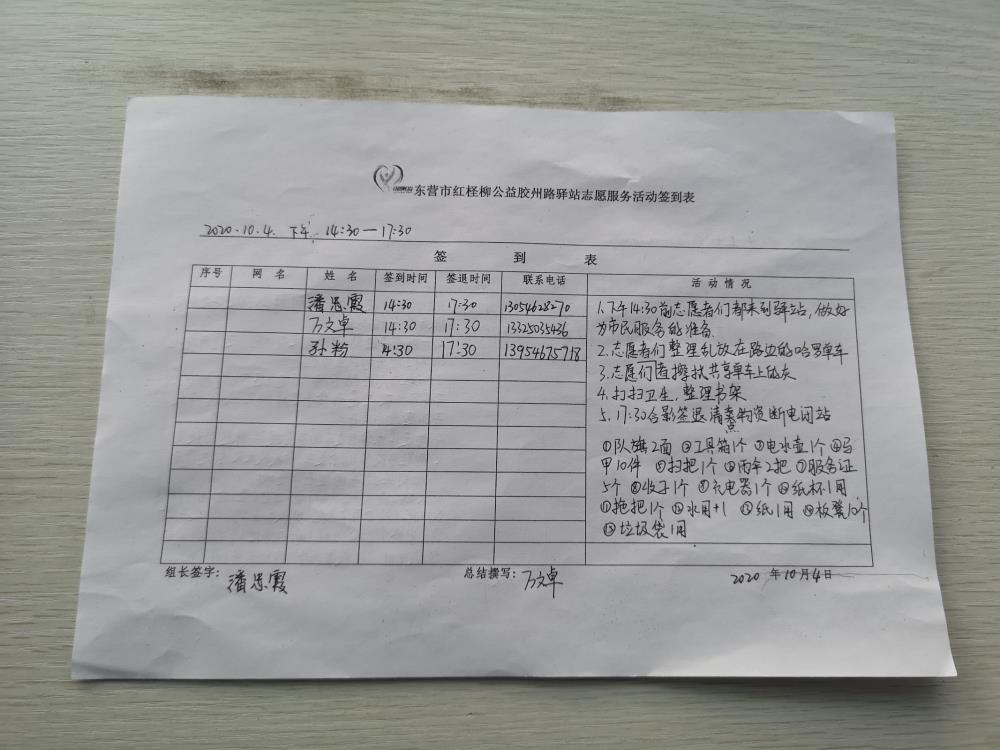 东营市红柽柳公益胶州路驿站志愿服务活动签到表
2020.10.4. 下午 14:30—17:30
签 到 表
序号 网 名 姓 名 签到时间 签退时间 联系电话 活 动 情 况
潘忠霞 14:30 17:30 13054628270
万文卓 14:30 17:30 13325035436
孙粉 4:30 17:30 13954675718
1.下午14:30前志愿者们都来到驿站,做好
为市民服务的准备
2.志愿者们整理乱放在路边的哈罗单车
3.志愿们者擦扶共享单车上的灰
4.打扫卫生,整理书架
5.17:30合影签退清点物资断电闭站
①队旗2面 ②工具箱1个 ③电水壶1个 ④马
甲10件 ⑤扫把1个 ⑥雨伞2把 ⑦服务证
5个 ⑧收子1个 ⑨充电器1个 ⑩纸杯1用
⑪拖把1个 ⑫水用+1 ⑬纸1用 ⑭板凳10个
⑮垃圾袋1用
组长签字: 潘忠霞 总结撰写: 万文卓 2020 年10月4日